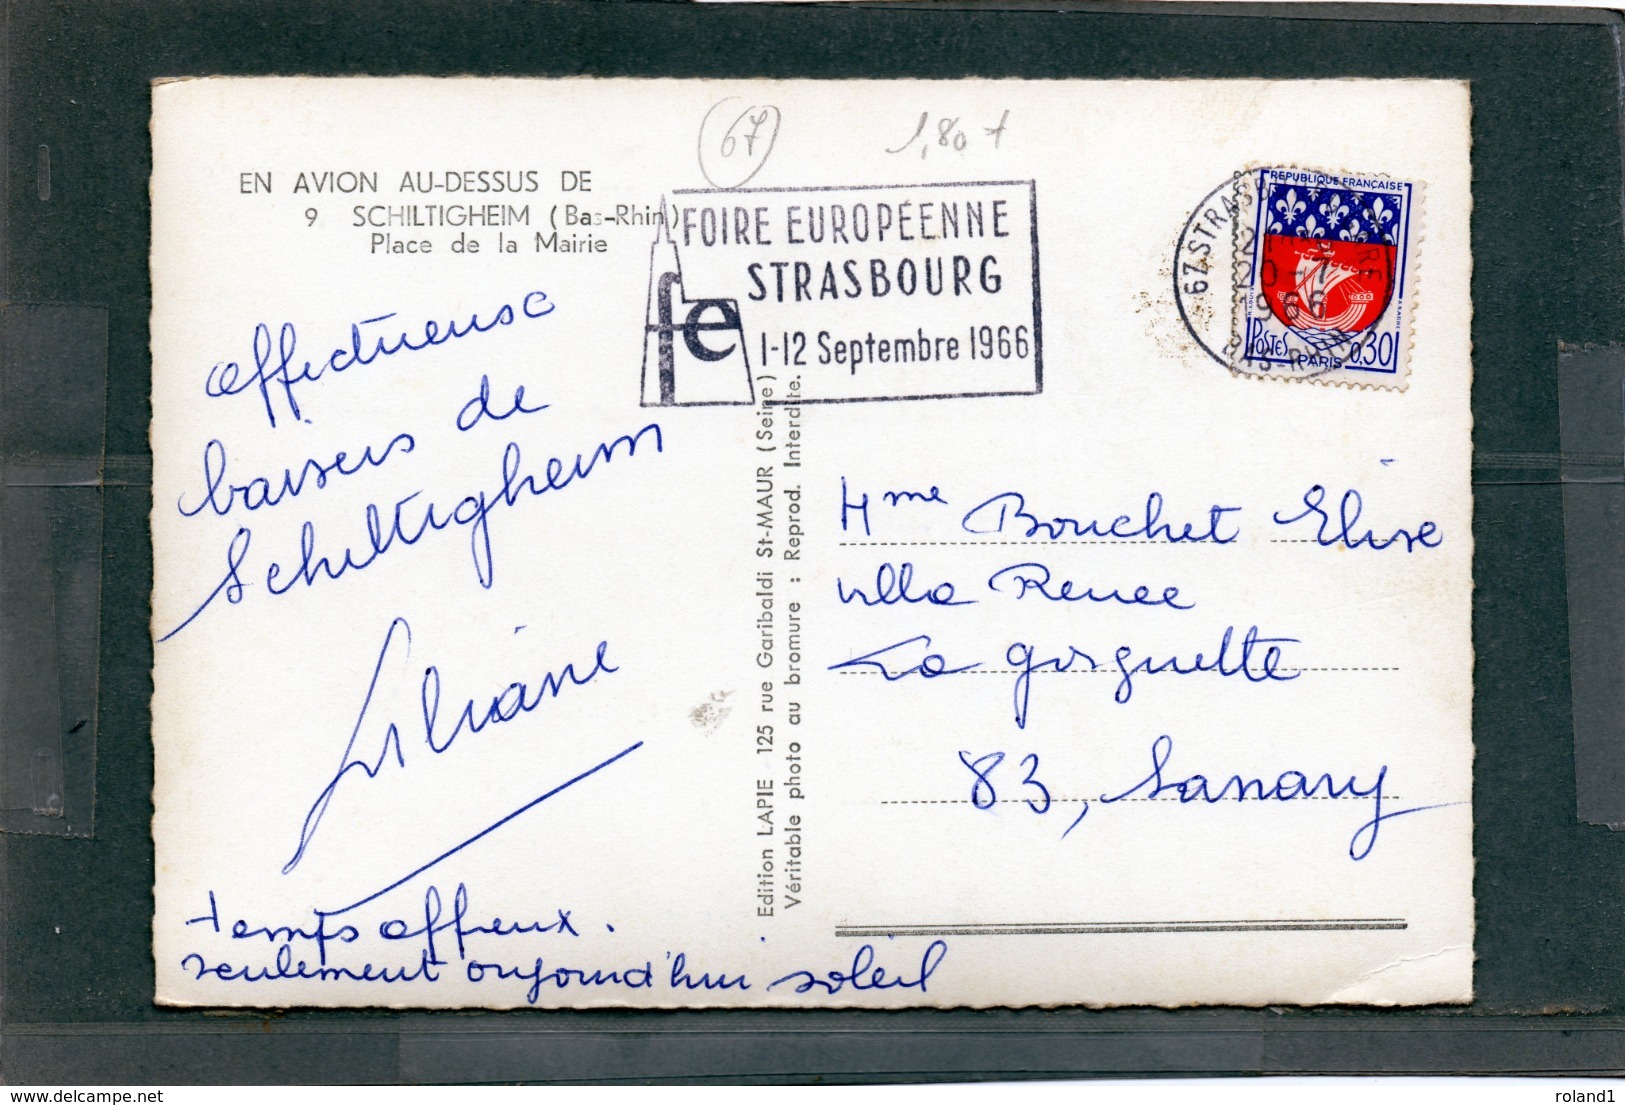 (67)
EN AVION AU-DESSUS DE
9 SCHILTIGHEIM (Bas-Rhin)
Place de la Mairie
FOIRE EUROPÉENNE
STRASBOURG
fe
1-12 Septembre 1966
67 STRASBOURG GARE
20-7
1966
BAS-RHIN
REPUBLIQUE FRANÇAISE
POSTES
0,30
PARIS
affectueuse
baisers de
Schiltigheim
Liliane
temps affreux.
seulement aujourd'hui soleil
Edition LAPIE 125 rue Garibaldi St-MAUR (Seine)
Véritable photo au bromure : Reprod. Interdite.
Mme Bouchet Elise
villa Renee
La gorguette
83, Sanary
delcampe.net
roland1